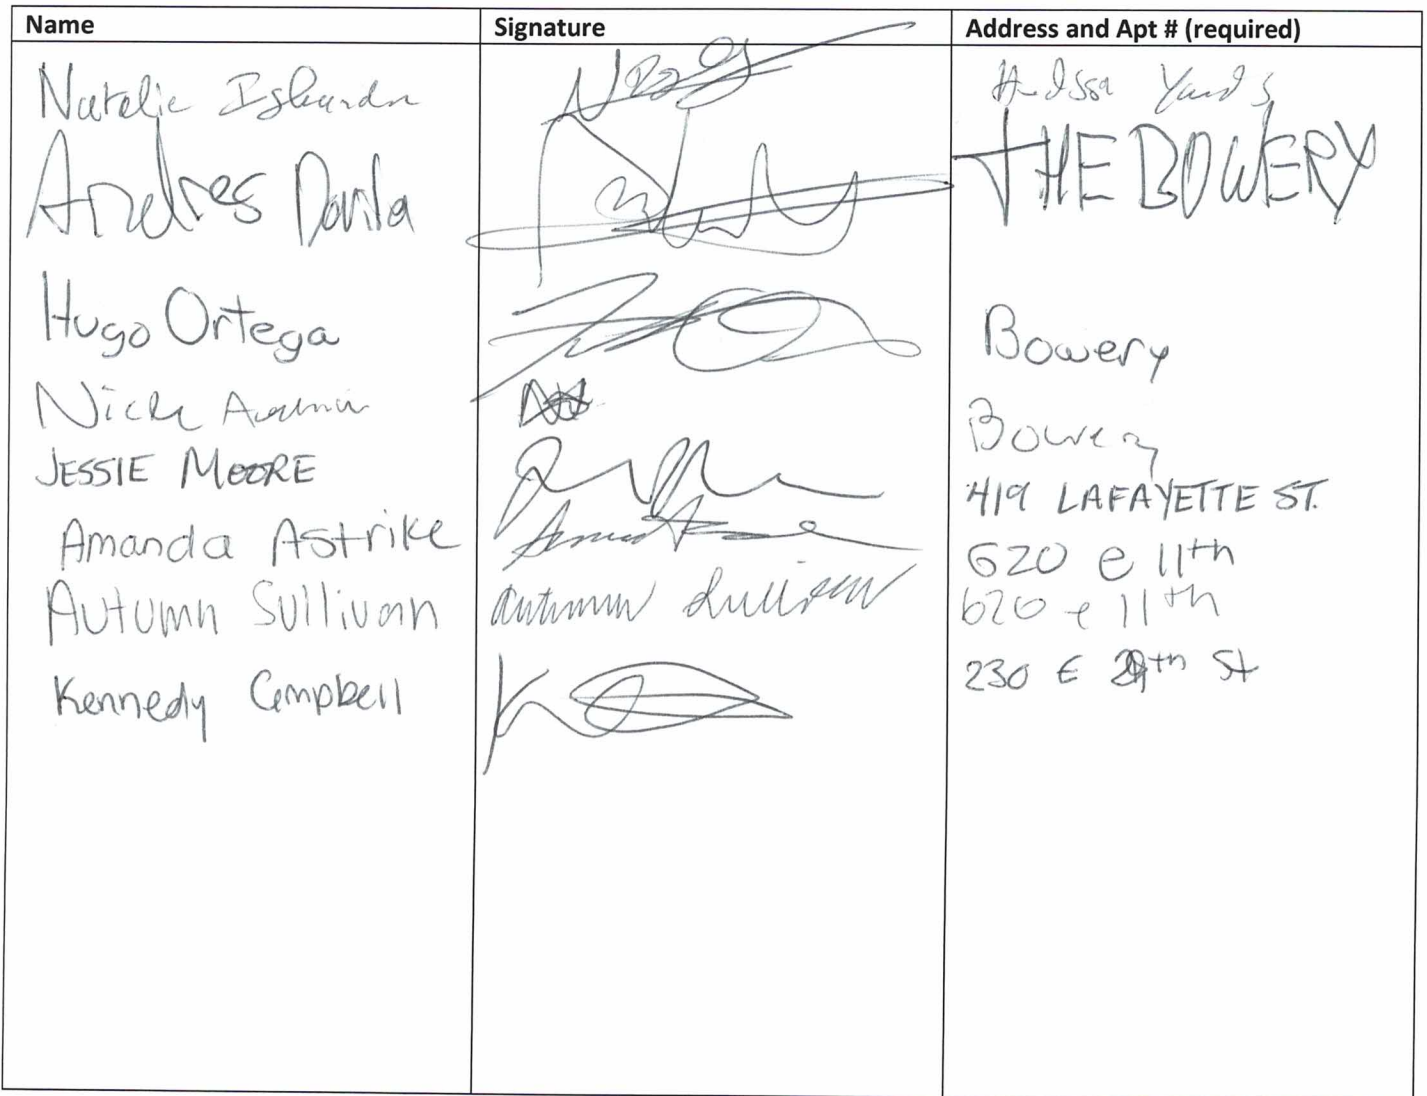 Name Signature Address and Apt # (required)
Natalie Yards
Andres Davila THE BOWERY
Hugo Ortega Bowery
Nick Bowery
JESSIE MOORE 419 LAFAYETTE ST.
Amanda Astrike 620 e 11th
Autumn Sullivan autumn sullivan 620 e 11th
Kennedy Campbell 230 E 29th St